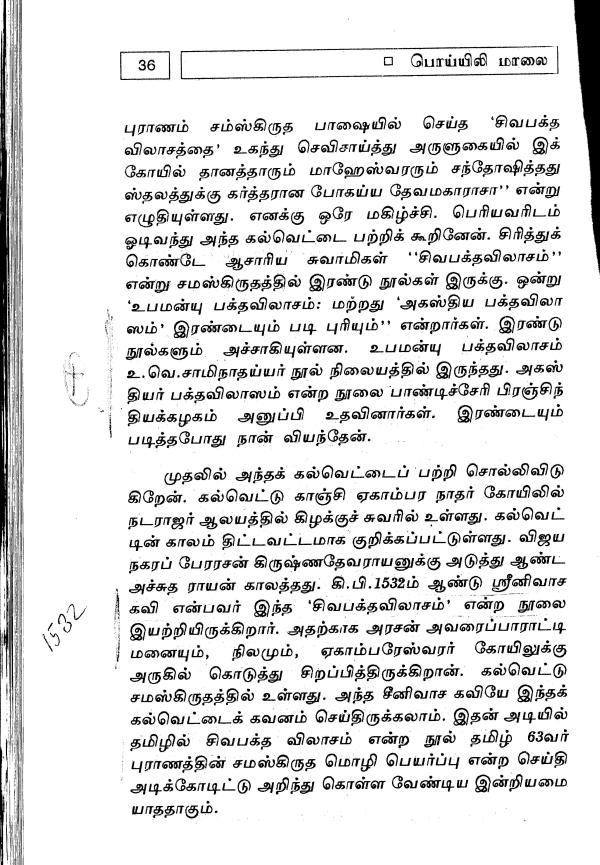 36
□ பொய்யிலி மாலை
புராணம் சம்ஸ்கிருத பாஷையில் செய்த 'சிவபக்த
விலாசத்தை' உகந்து செவிசாய்த்து அருளுகையில் இக்
கோயில் தானத்தாரும் மாஹேஸ்வரரும் சந்தோஷித்தது
ஸ்தலத்துக்கு கர்த்தரான போகய்ய தேவமகாராசா'' என்று
எழுதியுள்ளது. எனக்கு ஒரே மகிழ்ச்சி. பெரியவரிடம்
ஓடிவந்து அந்த கல்வெட்டை பற்றி கூறினேன். சிரித்துக்
கொண்டே ஆசாரிய சுவாமிகள் ''சிவபக்தவிலாசம்''
என்று சமஸ்கிருதத்தில் இரண்டு நூல்கள் இருக்கு. ஒன்று
'உபமன்யு பக்தவிலாசம்: மற்றது 'அகஸ்திய பக்தவிலா
ஸம்' இரண்டையும் படி புரியும்'' என்றார்கள். இரண்டு
நூல்களும் அச்சாகியுள்ளன. உபமன்யு பக்தவிலாசம்
உ.வெ.சாமிநாதய்யர் நூல் நிலையத்தில் இருந்தது. அகஸ்
தியர் பக்தவிலாஸம் என்ற நூலை பாண்டிச்சேரி பிரஞ்சிந்
தியக்கழகம் அனுப்பி உதவினார்கள். இரண்டையும்
படித்தபோது நான் வியந்தேன்.
முதலில் அந்தக் கல்வெட்டைப் பற்றி சொல்லிவிடு
கிறேன். கல்வெட்டு காஞ்சி ஏகாம்பர நாதர் கோயிலில்
நடராஜர் ஆலயத்தில் கிழக்குச் சுவரில் உள்ளது. கல்வெட்
டின் காலம் திட்டவட்டமாக குறிக்கப்பட்டுள்ளது. விஜய
நகரப் பேரரசன் கிருஷ்ணதேவராயனுக்கு அடுத்து ஆண்ட
அச்சுத ராயன் காலத்தது. கி.பி.1532ம் ஆண்டு ஸ்ரீனிவாச
கவி என்பவர் இந்த 'சிவபக்தவிலாசம்' என்ற நூலை
இயற்றியிருக்கிறார். அதற்காக அரசன் அவரைப்பாராட்டி
மனையும், நிலமும், ஏகாம்பரேஸ்வரர் கோயிலுக்கு
அருகில் கொடுத்து சிறப்பித்திருக்கிறான். கல்வெட்டு
சமஸ்கிருதத்தில் உள்ளது. அந்த சீனிவாச கவியே இந்தக்
கல்வெட்டைக் கவனம் செய்திருக்கலாம். இதன் அடியில்
தமிழில் சிவபக்த விலாசம் என்ற நூல் தமிழ் 63வர்
புராணத்தின் சமஸ்கிருத மொழி பெயர்ப்பு என்ற செய்தி
அடிக்கோடிட்டு அறிந்து கொள்ள வேண்டிய இன்றியமை
யாததாகும்.
1532